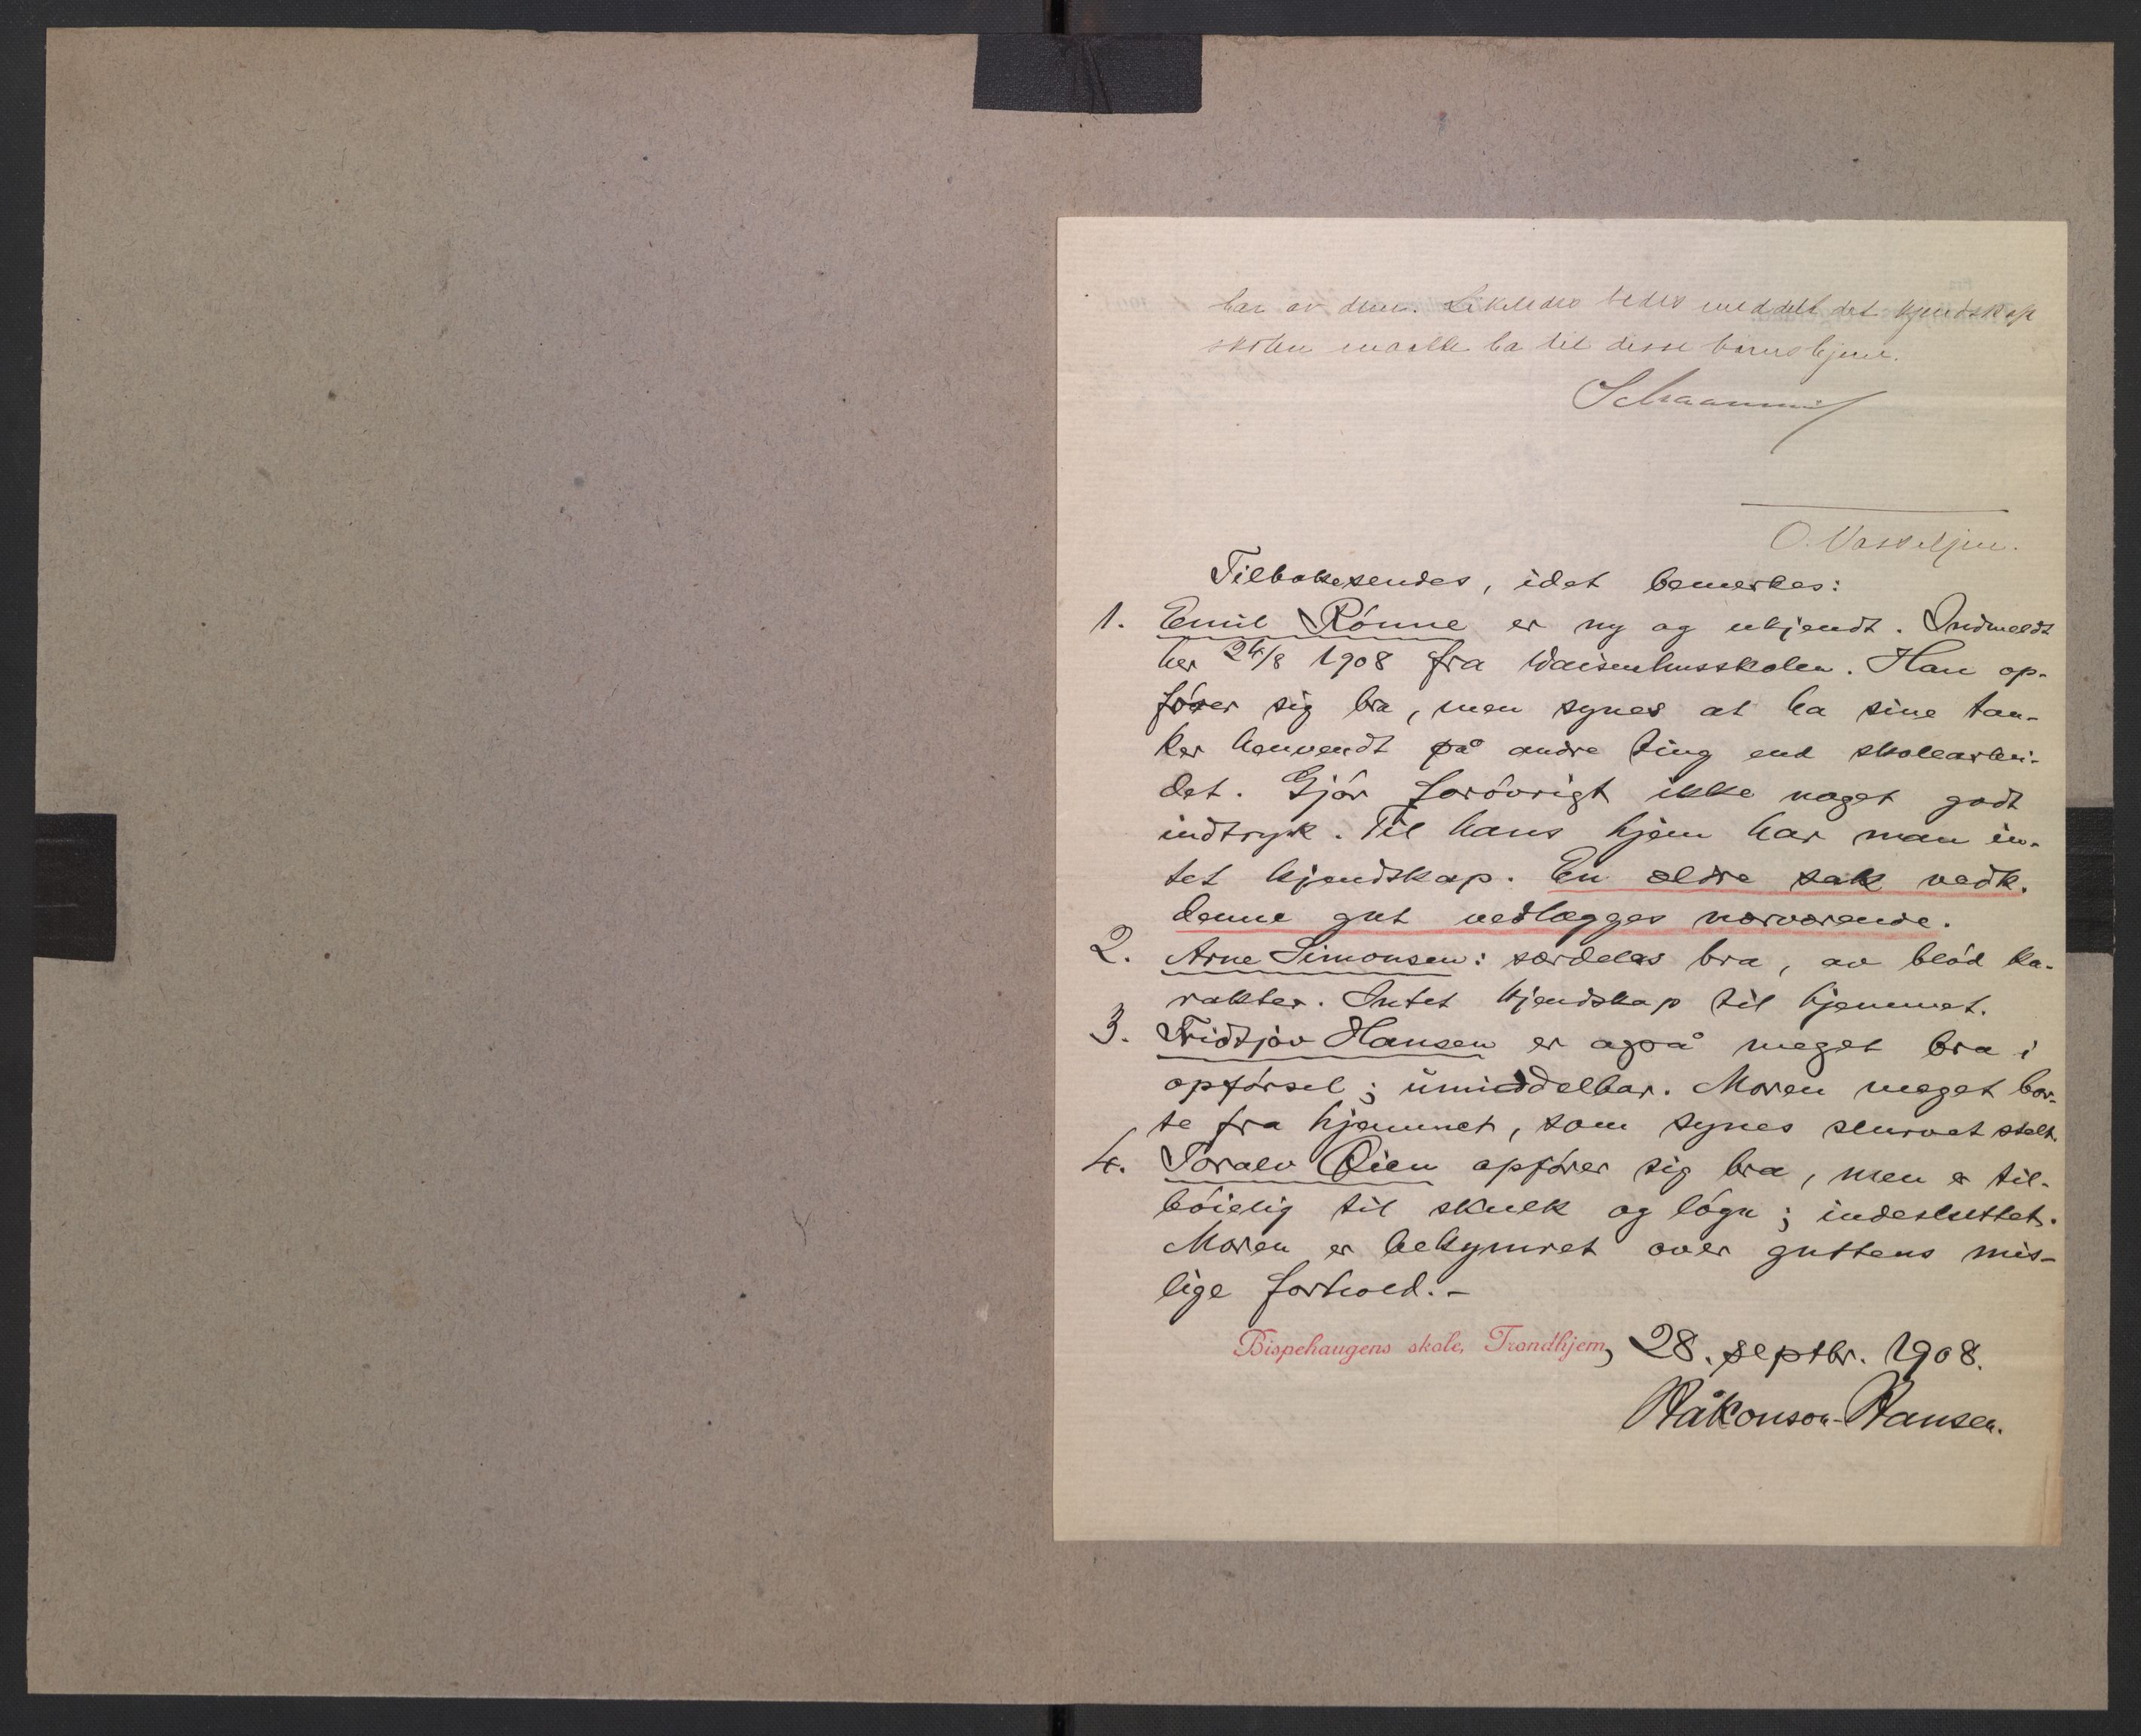 har av dem. Likeledes bedes meddelt det kjendskap
skolen maatte ha til disse barns hjem.
O. Vasseljen.
Tilbakesendes, idet bemerkes:
1. Emil Rónne er ny og ukjendt. Indmeldt
her 24/8 1908 fra Waisenhusskolen. Han op-
fórer sig bra, men synes at ha sine tan-
ker henvendt på andre ting end skolearbei-
det. Gjór foróvrigt ikke noget godt
indtryk. Til hans hjem har man in-
tet kjendskap. En ældre sak vedk.
denne gut vedlægges nærværende.
2. Arne Simonsen: særdeles bra, av blód ka-
rakter. Intet kjendskap til hjemmet.
3. Fridtjov Hansen er også meget bra i
opfórsel; umiddelbar. Moren meget bor-
te fra hjemmet, som synes slurvet stelt.
4. Toralv Øien opfórer sig bra, men er til-
bóielig til skulk og lógn; indesluttet.
Moren er bekymret over guttens mis-
lige forhold.-
Bispehaugens skole, Trondhjem, 28. septbr. 1908.
Håkonson-Hansen.